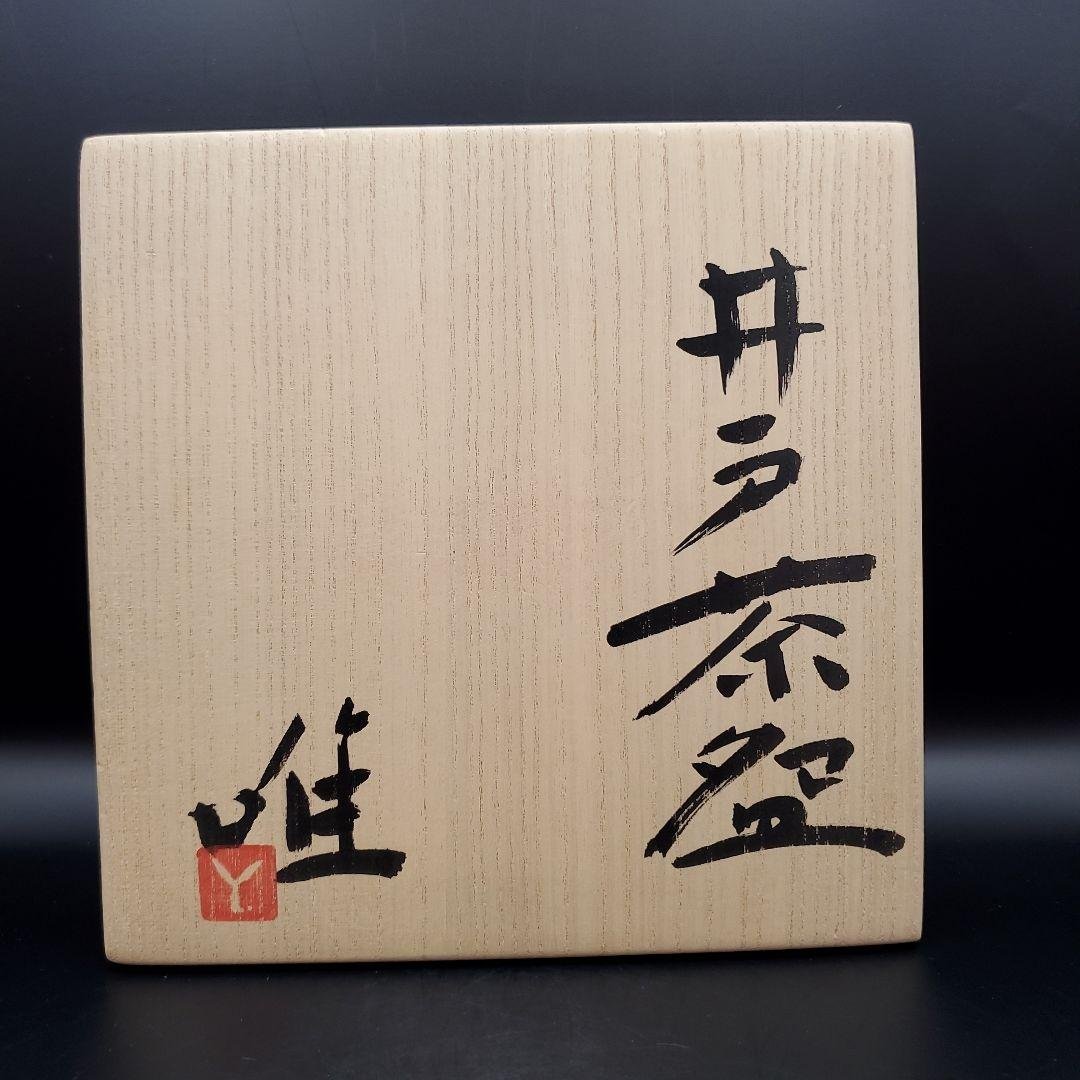 井戸茶盌
唯
Y